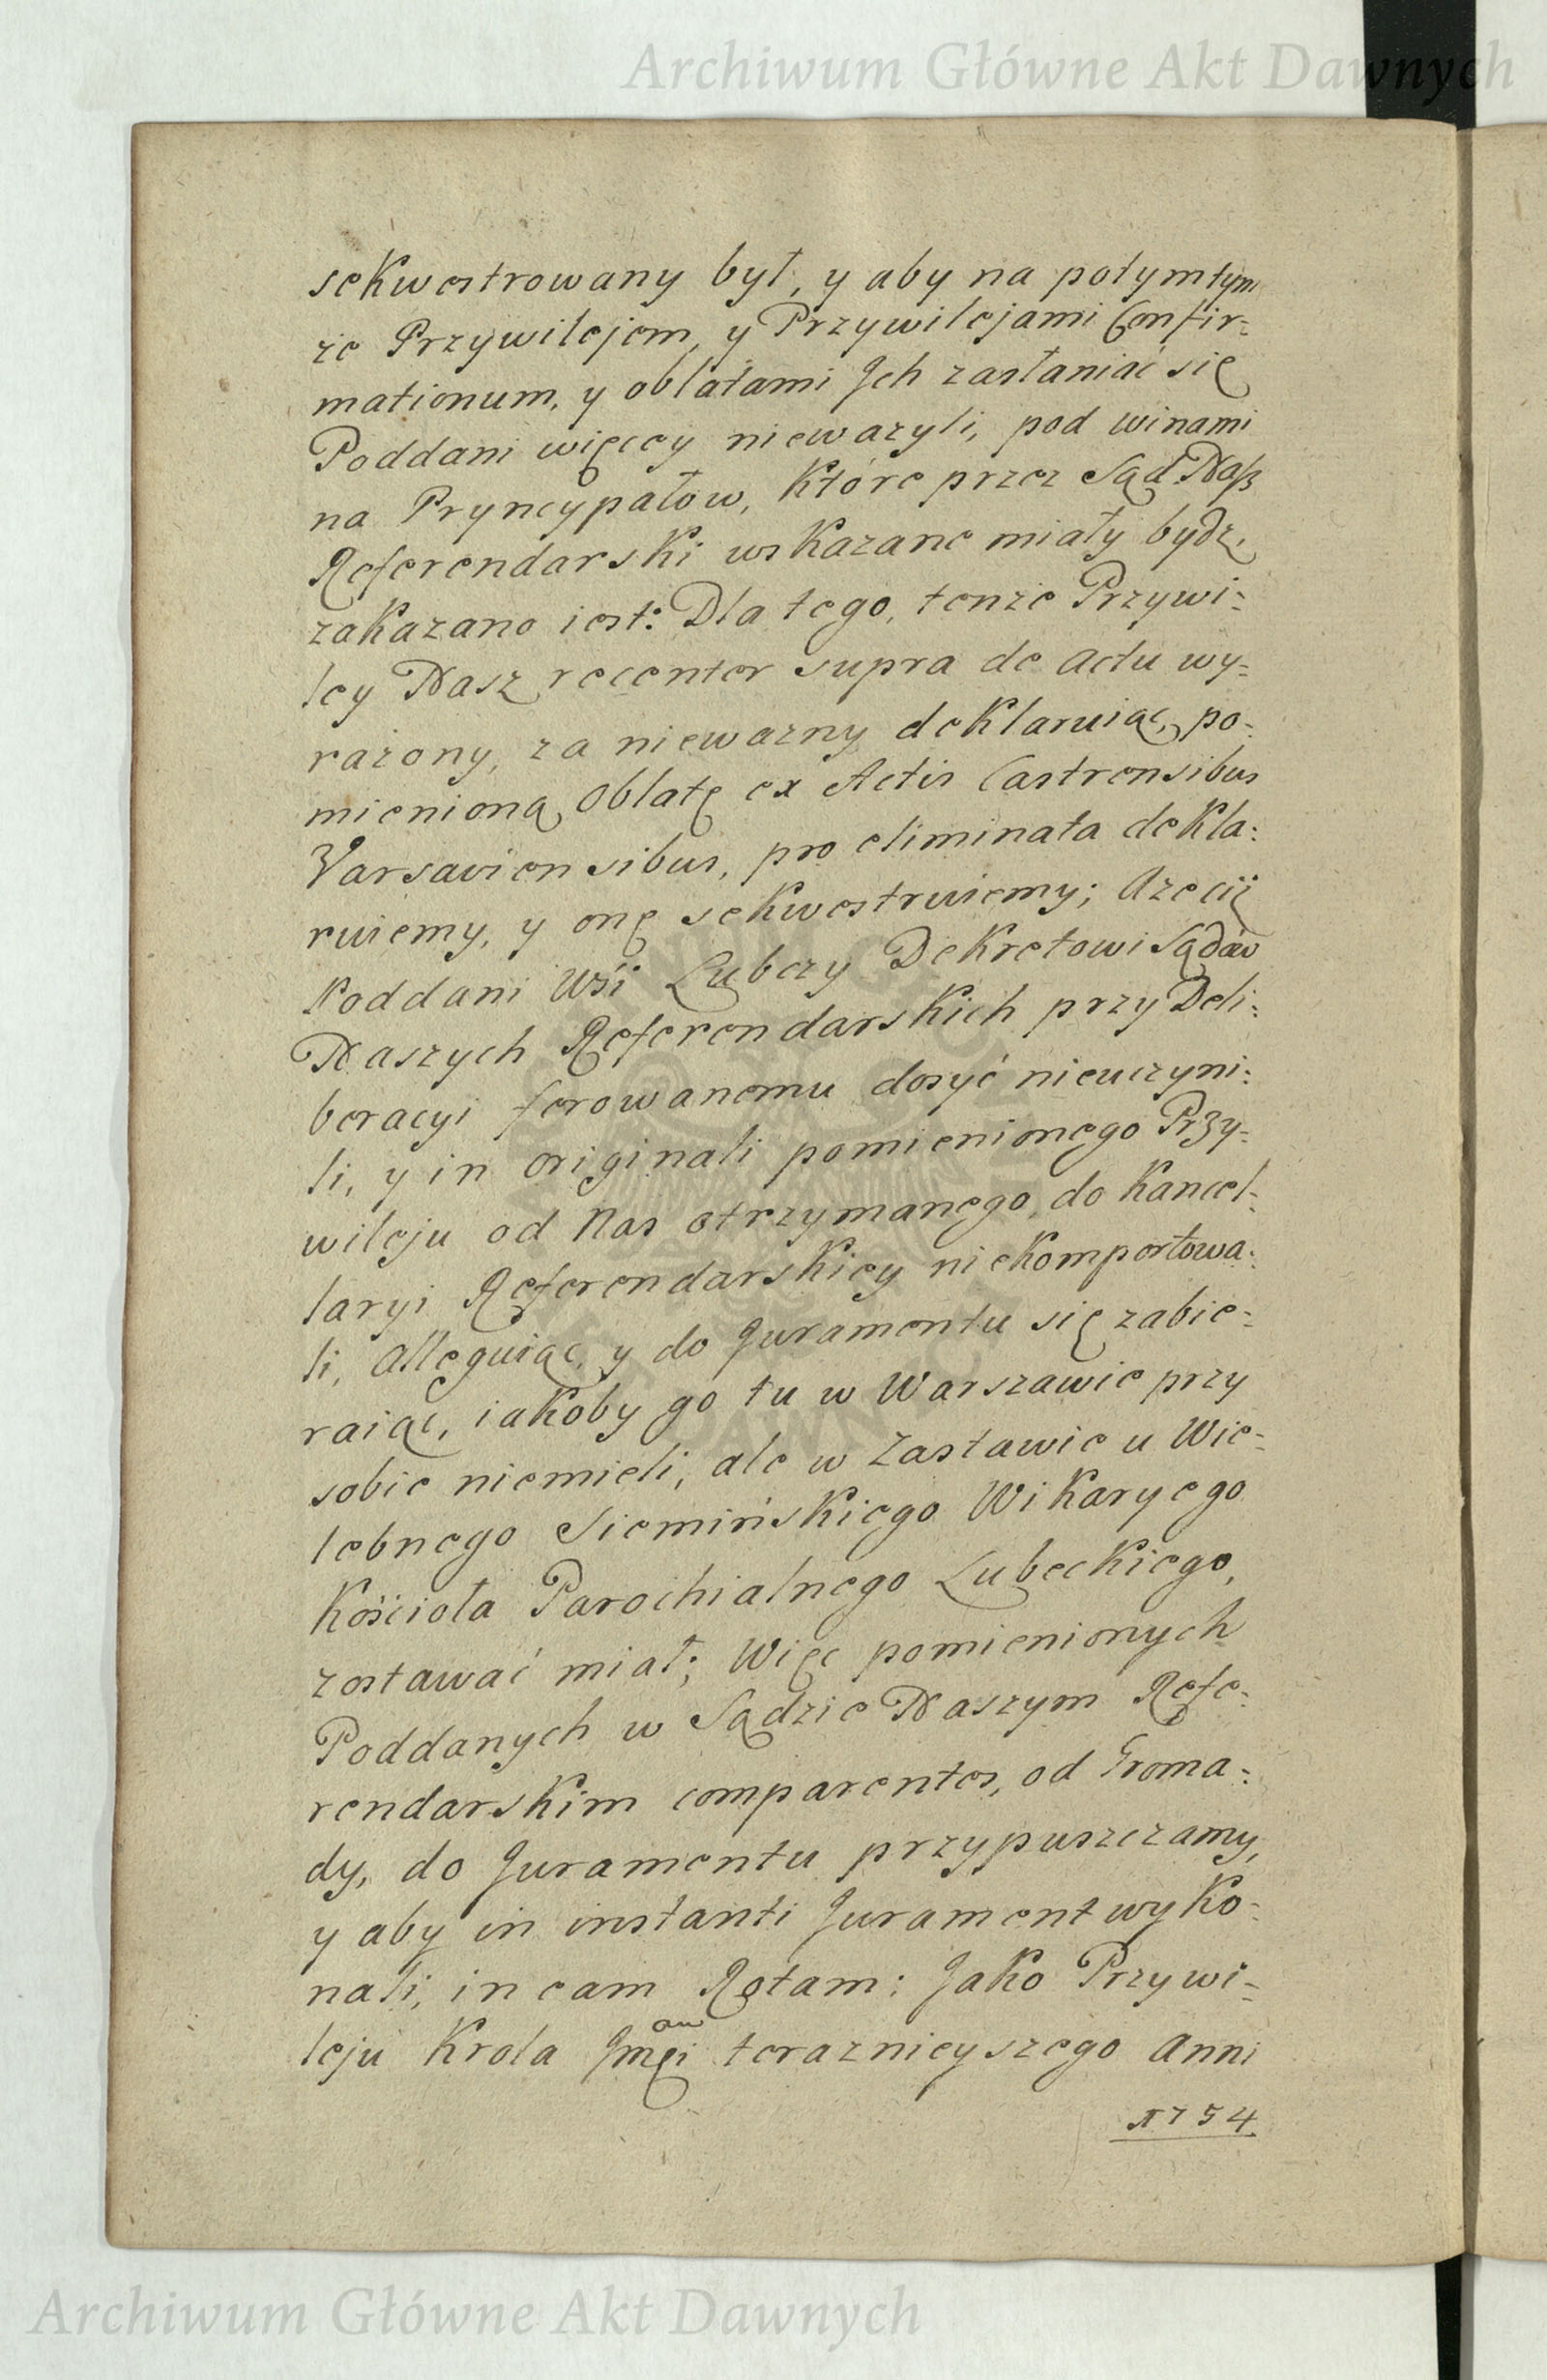 Archiwum Główne Akt Dawnych
sekwestrowany był, y aby na potym tym
że Przywilejem, y Przywilejami Confir=
mationum, y oblatami Jch zasłaniać się
Poddani więcey nieważyli, pod winami
na Pryncypałow, które przez Sąd Naß
Referendarski wskazane miały bydz,
zakazano iest: Dla tego, tenże Przywi=
ley Nasz recenter supra de actu wy=
rażony, za nieważny deklaruiąc, po=
mienioną Oblatę ex Actis Castrensibus
Varsaviensibus, pro eliminata dekla=
ruiemy, y onę sekwestruiemy; Aże ciż
Poddani Wsi Lubczy Dekretowi Sądów
Naszych Referendarskich przy Deli=
beracyi ferowanemu dosyć nieuczyni=
li, y in originali pomienionego Przy=
wileju od Nas otrzymanego, do Kancel=
laryi Referendarskiey niekomportowa=
li, alleguiąc, y do Juramentu się zabie=
raiąc, iakoby go tu w Warszawie przy
sobie niemieli, ale w Zastawie u Wie=
lebnego Siemińskiego Wikaryego
Kościoła Parochialnego Lubeckiego,
zostawać miał; Więc pomienionych
Poddanych w Sądzie Naszym Refe=
rendarskim comparentes, od Groma=
dy, do Juramentu przypuszczamy,
y aby in instanti Jurament wyko=
nali, in eam Rotam: Jako Przywi=
leju Krola Jmci teraznieyszego Anni
1754
Archiwum Główne Akt Dawnych